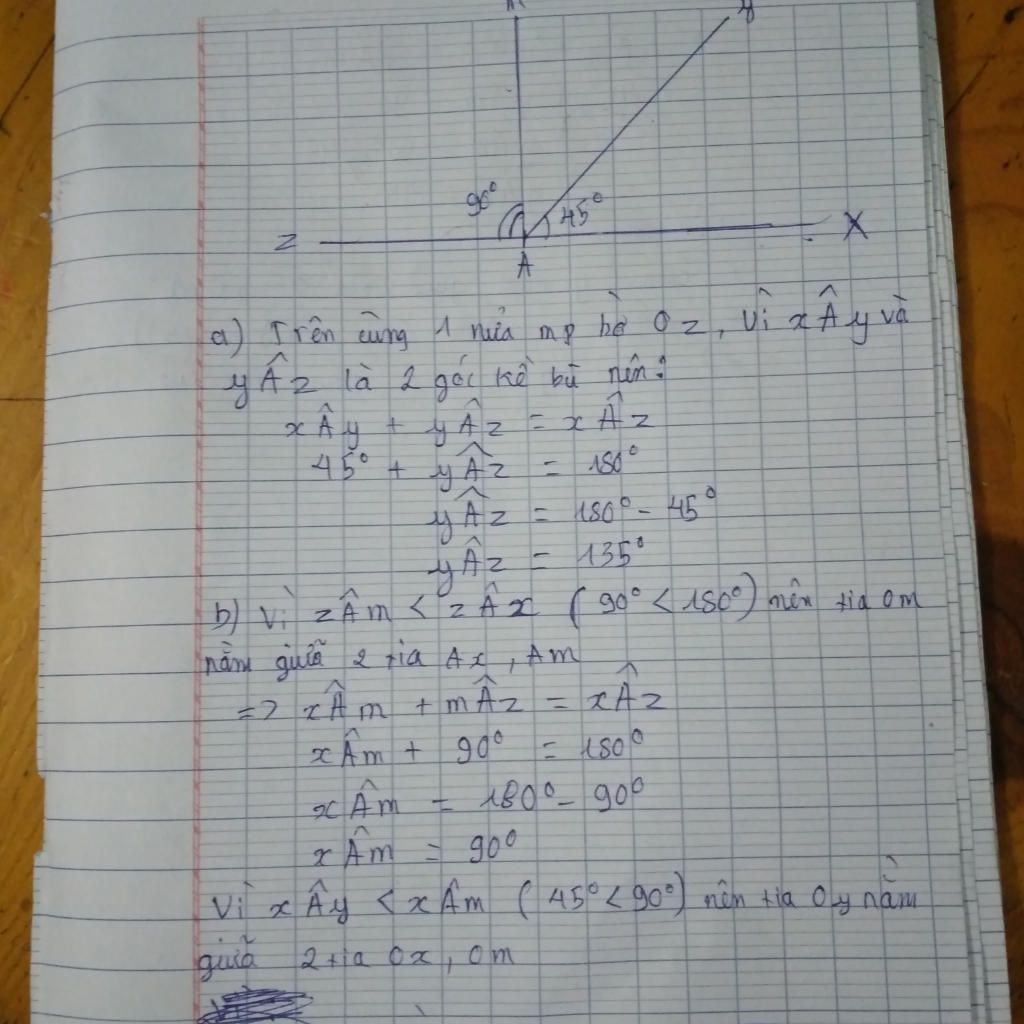 m
y
90°
45°
z
x
A
a) Trên cùng 1 nửa mp bờ Oz, Vì xÂy và
yÂz là 2 góc kề bù nên:
xÂy + yÂz = xÂz
45° + yÂz = 180°
yÂz = 180° - 45°
yÂz = 135°
b) Vì zÂm < zÂx (90° < 180°) nên tia Om
nằm giữa 2 tia Ax, Am
=> xÂm + mÂz = xÂz
xÂm + 90° = 180°
xÂm = 180° - 90°
xÂm = 90°
Vì xÂy < xÂm (45° < 90°) nên tia Oy nằm
giữa 2 tia Ox, Om